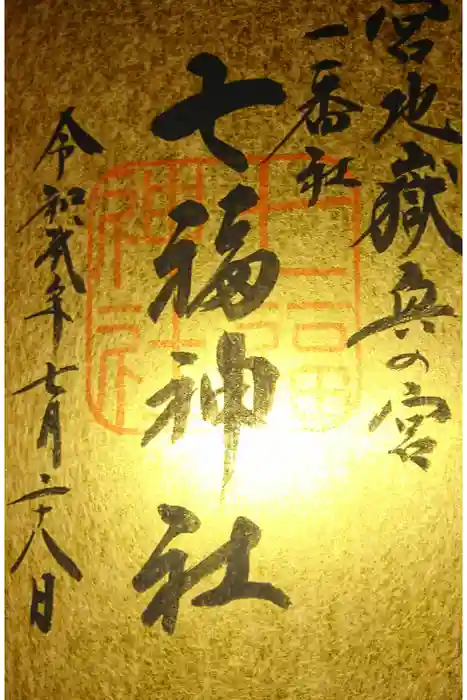 宮地嶽奥の宮
一番社
七福神社
令和弐年七月二十八日
七福
神社